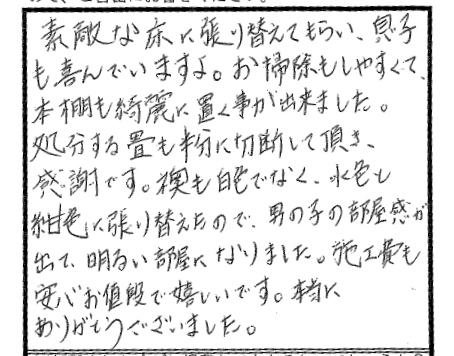 素敵な床に張り替えてもらい、息子
も喜んでいますよ。お掃除もしやすくて、
本棚も綺麗に置く事が出来ました。
処分する畳も半分に切断して頂き、
感謝です。襖も白色でなく、水色と
紺色に張り替えたので、男の子の部屋感が
出て、明るい部屋になりました。施工費も
安心お値段で嬉しいです。本当に
ありがとうございました。